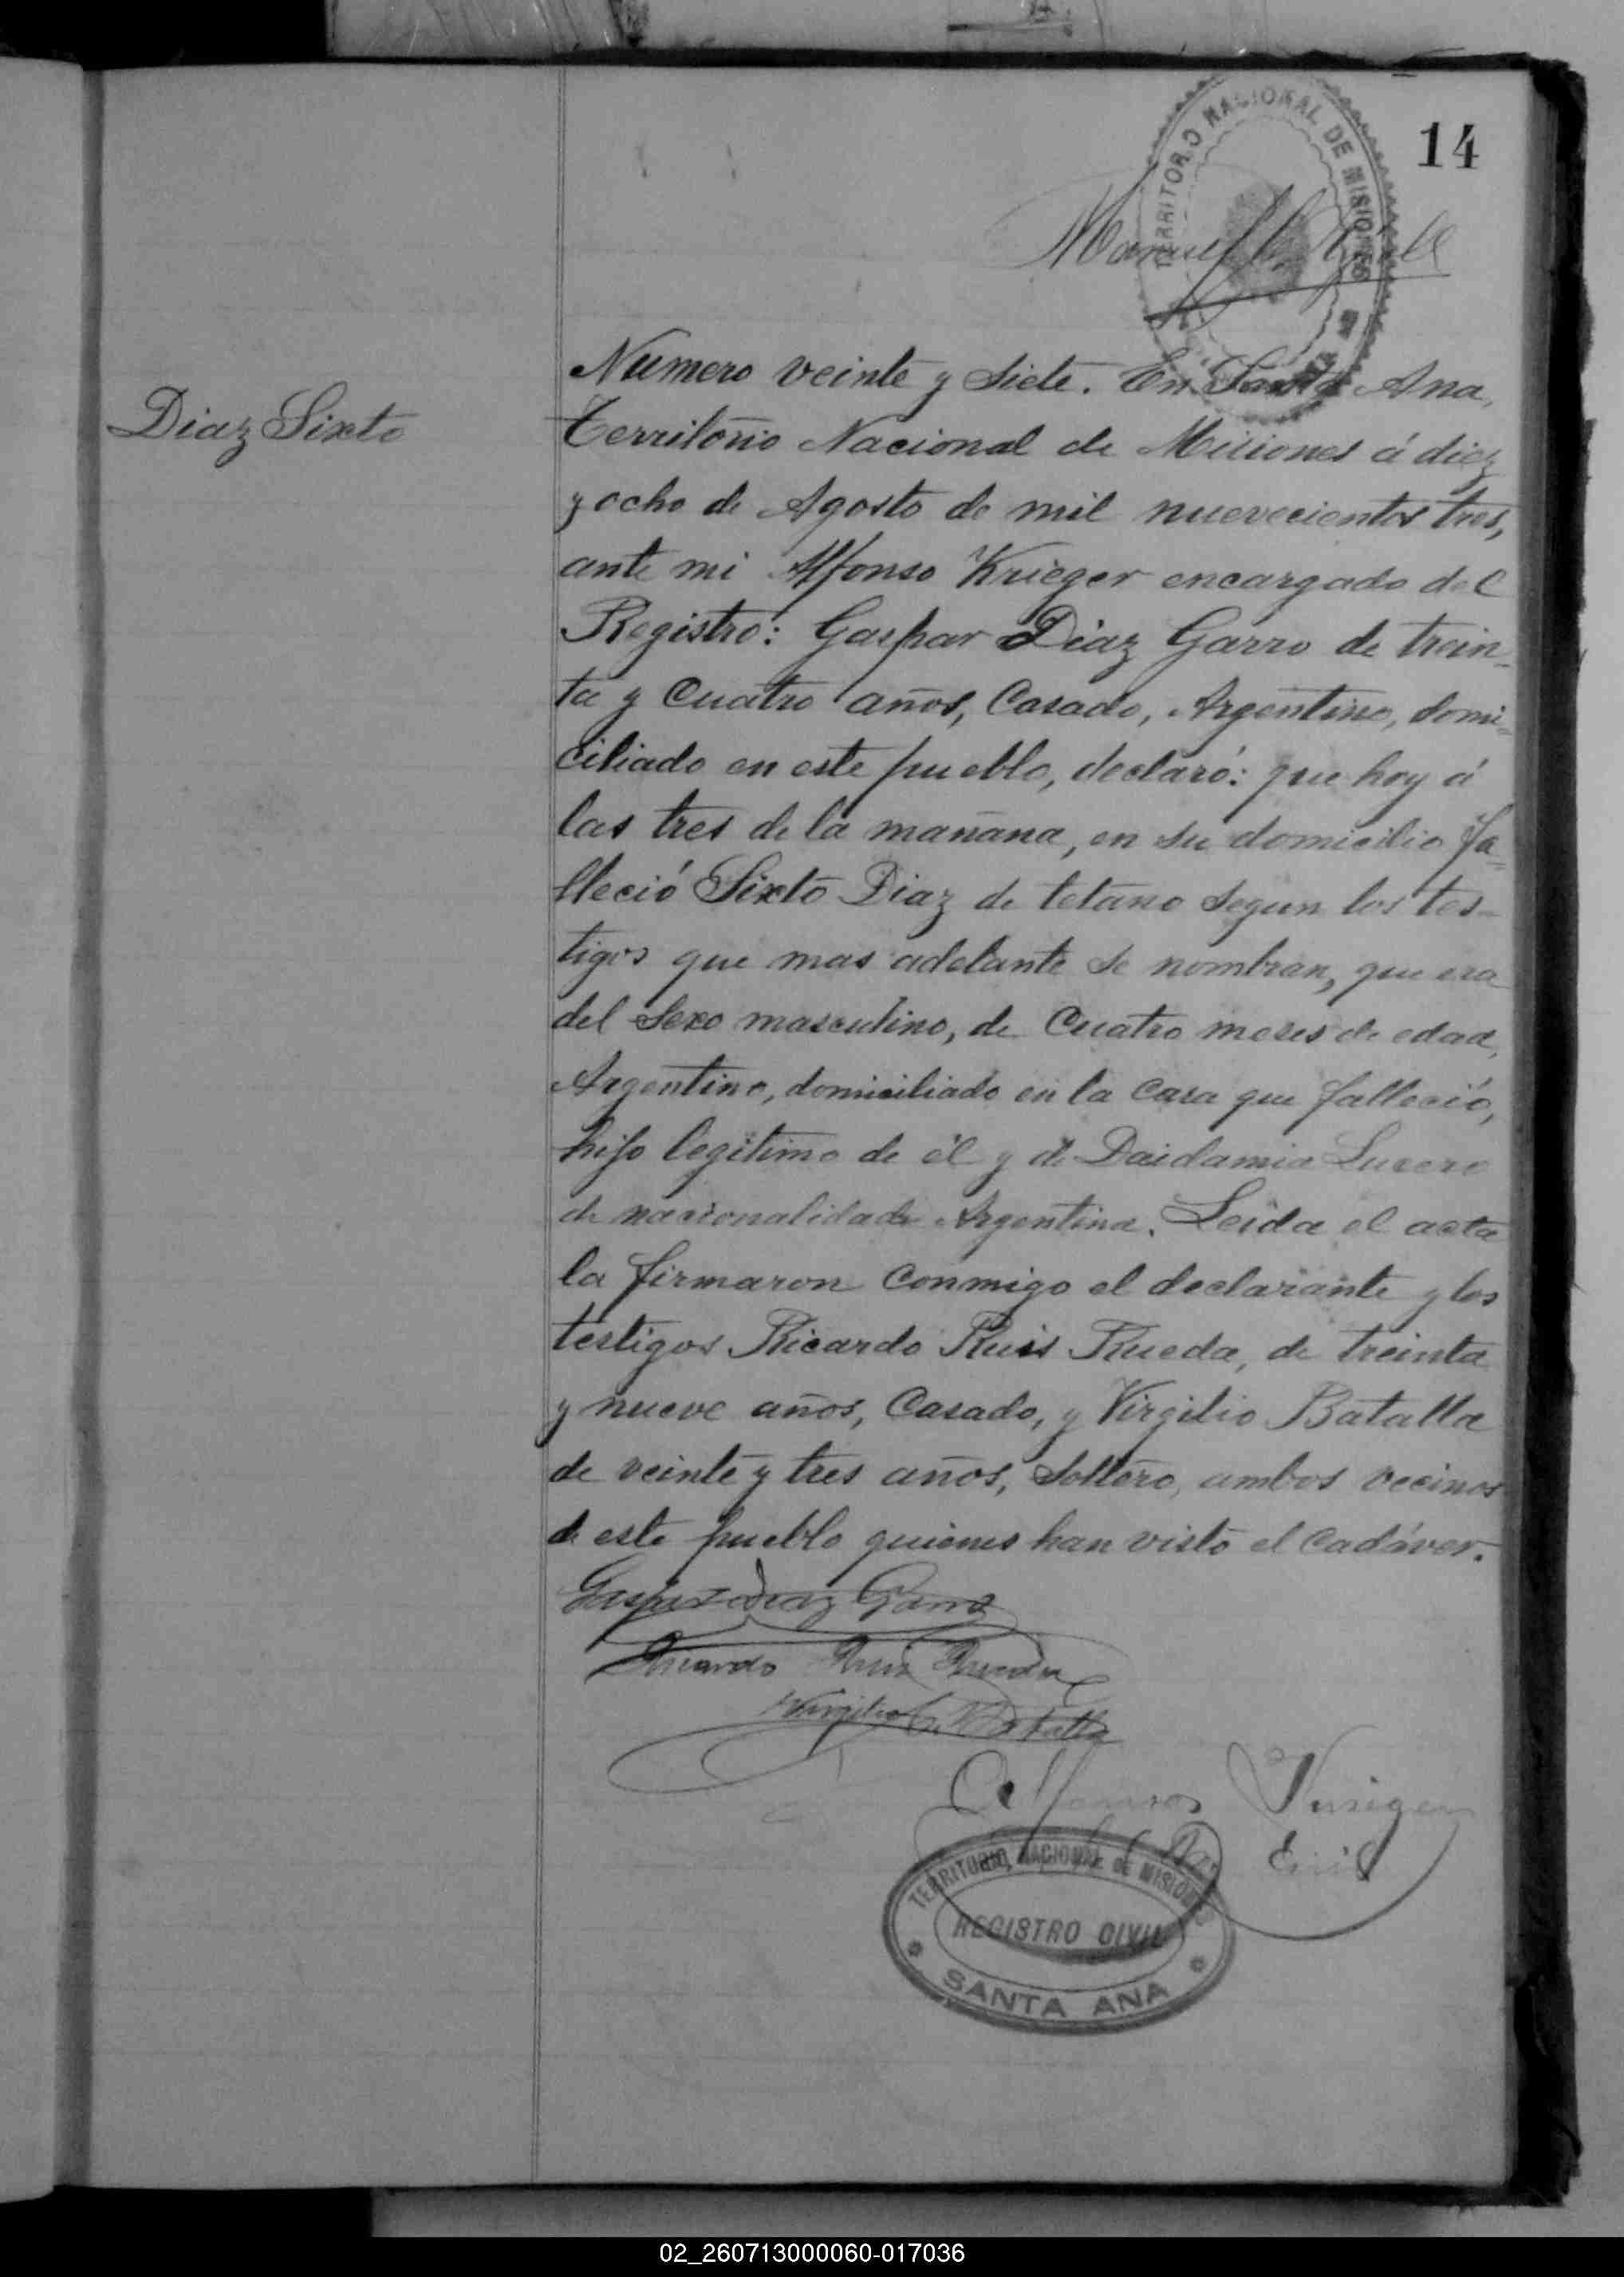 14
TERRITORIO NACIONAL DE MISIONES
Manuel
Diaz Sixto
Numero veinte y siete. En Santa Ana,
Territorio Nacional de Misiones á diez
y ocho de Agosto de mil nuevecientos tres,
ante mi Alfonso Krieger encargado del
Registro: Gaspar Diaz Garro de trein-
ta y cuatro años, Casado, Argentino, domi-
ciliado en este pueblo, declaró: que hoy á
las tres de la mañana, en su domicilio fa-
lleció Sixto Diaz de tetano segun los tes-
tigos que mas adelante se nombran, que era
del sexo masculino, de cuatro meses de edad,
Argentino, domiciliado en la casa que falleció,
hijo legitimo de él y de Daidamia Lucero
de nacionalidade Argentina. Leida el acta
la firmaron conmigo el declarante y los
testigos Ricardo Ruis Rueda, de treinta
y nueve años, Casado, y Virgilio Batalla
de veinte y tres años, Soltero, ambos vecinos
de este pueblo quienes han visto el cadáver.
Gaspar Diaz Garro
Ricardo Ruiz Rueda
Virgilio C. Batalla
Alfonso Krieger
TERRITORIO NACIONAL DE MISIONES
REGISTRO CIVIL
SANTA ANA
02_260713000060-017036